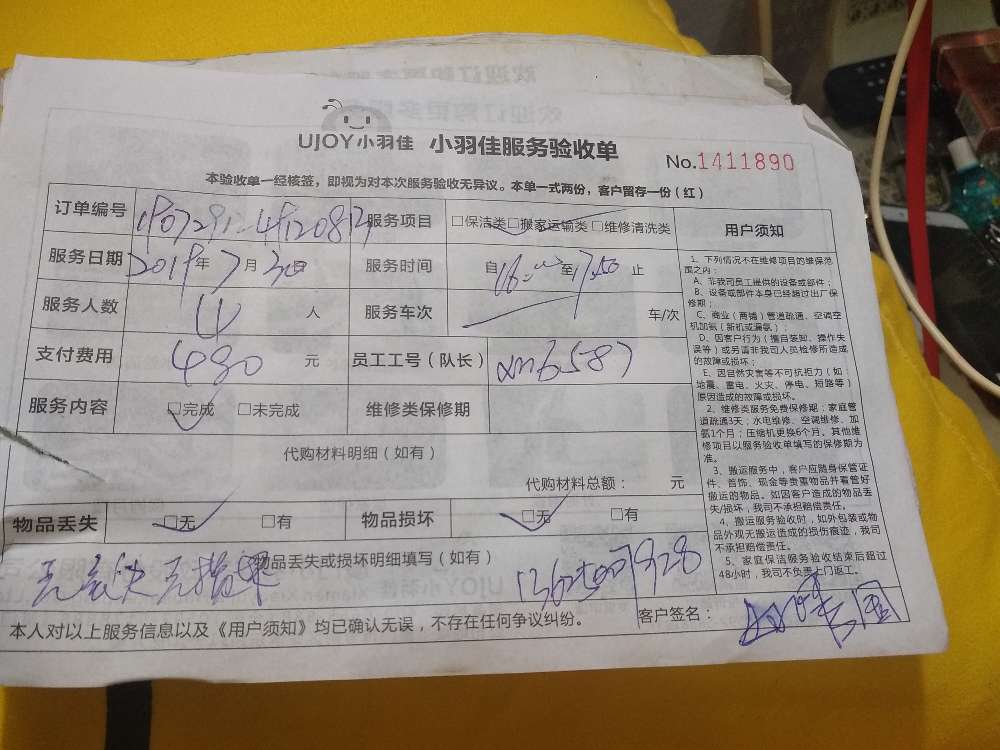 UJOY小羽佳 小羽佳服务验收单 No.1411890
本验收单一经核签，即视为对本次服务验收无异议。本单一式两份，客户留存一份（红）
订单编号 服务项目 □保洁类□搬家运输类□维修清洗类
服务日期 2019年7月30日 服务时间 自16:00至17:50止
服务人数 4人 服务车次 车/次
支付费用 480元 员工工号（队长） xm6587
服务内容 □完成 □未完成 维修类保修期
代购材料明细（如有）
代购材料总额： 元
物品丢失 □无 □有 物品损坏 □无 □有
物品丢失或损坏明细填写（如有）
无丢失无损坏
本人对以上服务信息以及《用户须知》均已确认无误，不存在任何争议纠纷。 客户签名：
用户须知
1、下列情况不在维修项目的维保范
围之内：
A、非我司员工提供的设备或部件；
B、设备或部件本身已经超过出厂保
修期；
C、商业（商铺）管道疏通、空调空
机加氨（新机或漏氨）；
D、因客户行为（擅自装卸、操作失
误等）或另请非我司人员检修所造成
的故障或损坏；
E、因自然灾害等不可抗拒力（如：
地震、雷电、火灾、停电、短路等）
原因造成的故障或损坏。
2、维修类服务免费保修期：家庭管
道疏通3天；水电维修、空调维修、加
氨1个月；压缩机更换6个月。其他维
修项目以服务验收单填写的保修期为
准。
3、搬运服务中，客户应随身保管证
件、首饰、现金等贵重物品并看管好
搬运的物品。如因客户造成的物品丢
失/损坏，我司不承担赔偿责任。
4、搬运服务验收时，如外包装或物
品外观无搬运造成的损伤痕迹，我司
不承担赔偿责任。
5、家庭保洁服务验收结束后超过
48小时，我司不负责上门返工。